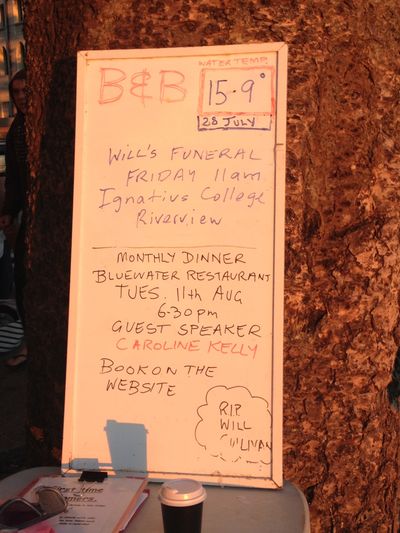 WATER TEMP
B&B
15.9°
28 JULY
WILL'S FUNERAL
FRIDAY 11am
Ignatius College
Riverview
MONTHLY DINNER
BLUEWATER RESTAURANT
TUES. 11th AUG
6.30pm
GUEST SPEAKER
CAROLINE KELLY
BOOK ON THE
WEBSITE
R.I.P.
WILL
First time